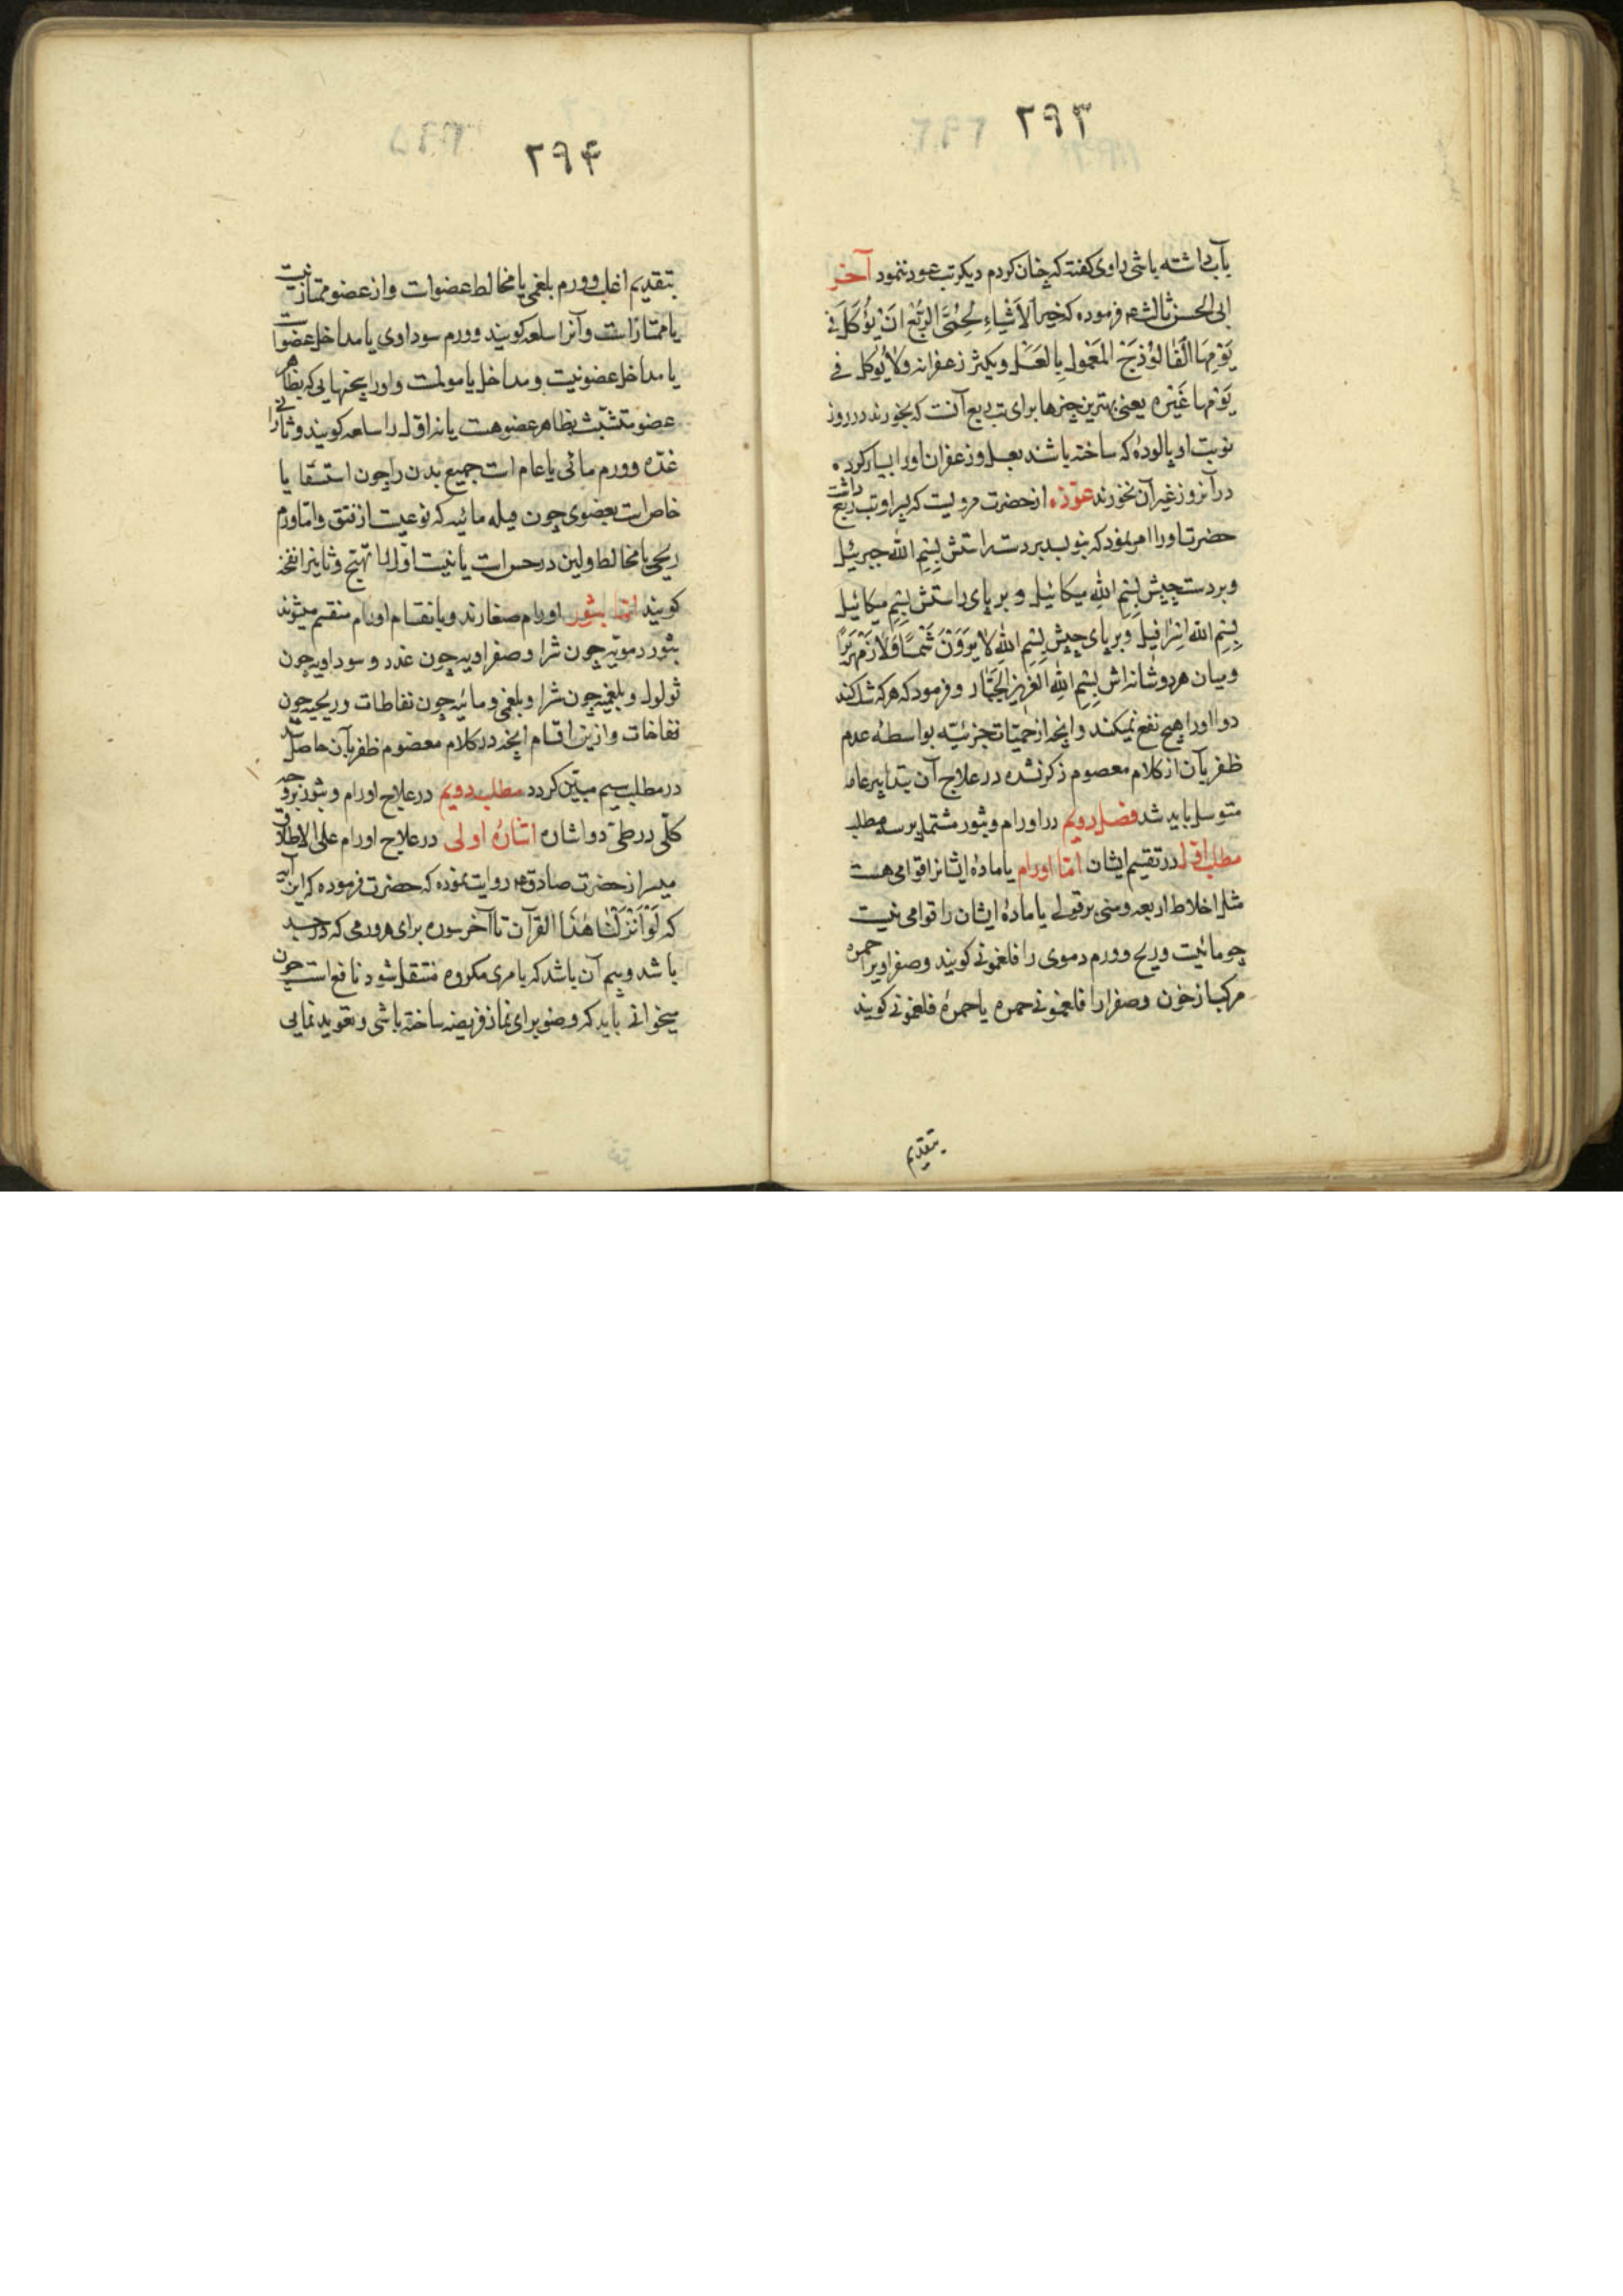 ۲۹۳
بآب داشته باشی راوی کفته که چنان کردم دیکر تب عود ننمود آخر
ابی الحسن ثالث ۴ فرموده که خیر الاَشیاءِ لِحُمَّی الرِبْع اَنْ یُؤکَلَ فی
یَوْمِهَا اَلفَالُوْذَجَ المَعْمولِ بِالعَسَلِ ویکثر زعفرانه ولا یُوکل فی
یَوْمِها غَیْره یعنی بهترین چیزها برای تب ربع آنست که بخورند در روز
نوبت او پالودهٔ که ساخته باشند بعسل وزعفران اورا بسیار کرده
در آنروز غیر آن نخورند عوّذه از حضرت مرویست که پسر او تب ربع داشت
حضرت اورا امر نمود که بنویسد بر دست راستش بِسْمِ اللّه جبرئیل
وبر دست چپش بِسْمِ اللّهِ میکائیل وبر پای راستش بِسْمِ میکائیل
بِسْمِ اللّه اِسْرٰافیلَ وبر پای چپش بِسْمِ اللّهِ لا یَرَوْنَ شَمْسًا وَلا زَمْهَریرًا
ومیان هر دو شانه اش بِسْمِ اللّهِ اَلعَزیز الجَبّار وفرمود که هر که شک کند
دوا اورا هیچ نفع نمیکند وآنچه از حمّیات جزئیّه بواسطهٔ عدم
ظفر بآن از کلام معصوم ذکر نشده در علاج آن بتدابیر عامه
متوسل باید شد فصل دویم در اورام وبثور مشتمل بر سه مطلب
مطلب اوّل در تقسیم ایشان امّا اورام یا مادهٔ ایشانرا قوامی هست
مثل اخلاط اربعه ومنی بر قولی یا مادهٔ ایشان را قوامی نیست
چو مائیت وریح وورم دموی را فلغمونی کویند وصفراویرا حمره
مرکب از خون وصفرا را فلغمونی حمره یا حمرهٔ فلغمونی کویند
بتقدیم
۲۹۴
بتقدیم اغلب وورم بلغمی یا مخالط عضوات واز عضو ممتاز نیست
یا ممتاز است وآنرا سلعه کویند وورم سوداوی یا مداخل عضوا ست
یا مداخل عضو نیست ومداخل یا مولمت واورا بیخهایی که بظاهر
عضو متشبّث بظاهر عضو هست یا نه اوّل را سلعه کویند وثانی را
غدّه وورم مائی یا عام است جمیع بدن را چون استسقا یا
خاص است بعضوی چون قیله مائیه که نوعیست از فتق وامّا ورم
ریحی یا مخالط ولین در حس است یا نیست اوّل را تهیّج وثانیرا نفخه
کویند امّا بثور اورام صغارند وبانقسام اورام منقسم میشوند
بثور دمویّه چون شرا وصفراویه چون غدد وسوداویه چون
ثولول وبلغمیّه چون شرا وبلغمی ومائیه چون نفاطات وریحیه چون
نفاخات وازین اقسام آنچه در کلام معصوم ظفر بآن حاصل شد
در مطلب سیم مبیّن کردد مطلب دویم در علاج اورام وبثور بر وجه
کلّی در طیّ دو اشاره اشارهٔ اولی در علاج اورام علی الاطلاق
میسر از حضرت صادق ۴ روایت نموده که حضرت فرموده که این آیه
که لَوْ اَنْزَلْنٰا هٰذَا القُرآنَ تا آخر سوره برای هر ورمی که در جسد
باشد وبیم آن باشد که بامری مکروه منتقل شود نافع است چون
میخوانی باید که وضو برای نماز فریضه ساخته باشی وتعوید نمایی